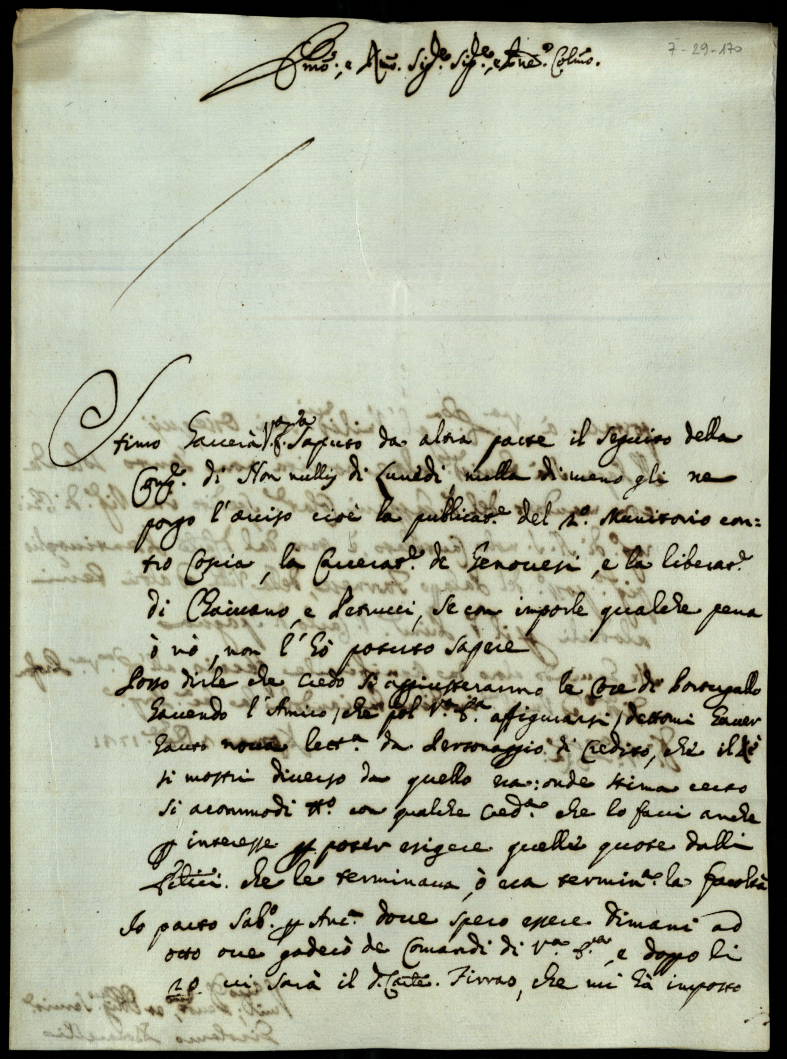 7-29-170
Emo., e Rmo. Sigre. Sigre., e Pne. Colmo.
Stimo Haverà V.ra E.za Saputo da altra parte il Seguito della
Congne. di Non nullis di Lunedì nulla di meno gli ne
porgo l'aviso cioè la publicatne. del 2o. Munitorio con=
tro Copia, la Carceratne. de Genovesi, e la liberatne.
di Chaivano, e Petrucci, Se con imporle qualche pena
ò nò, non l'hò potuto Sapere
Posso dirle che credo Si aggiusteranno le Cose di Portugallo
havendo l'Amico, che può V.ra E.za affigurarsi, dettomi haver
hauto nova lettra. da Personaggio di Credito, che il Rè
si mostri diverso da quello era: onde stima certo
Si acommodi tto. con qualche che lo facci anche
p interesse p poter esigere quelle quote dalli
che le terminava, ò era terminta. la facoltà
Io parto Sabo. p Anca. dove spero essere dimani ad
otto ove goderò de Comandi di V.ra E.za, e doppo li
20 vi Sarà il d. Carle. Firrao, che mi hà imposto